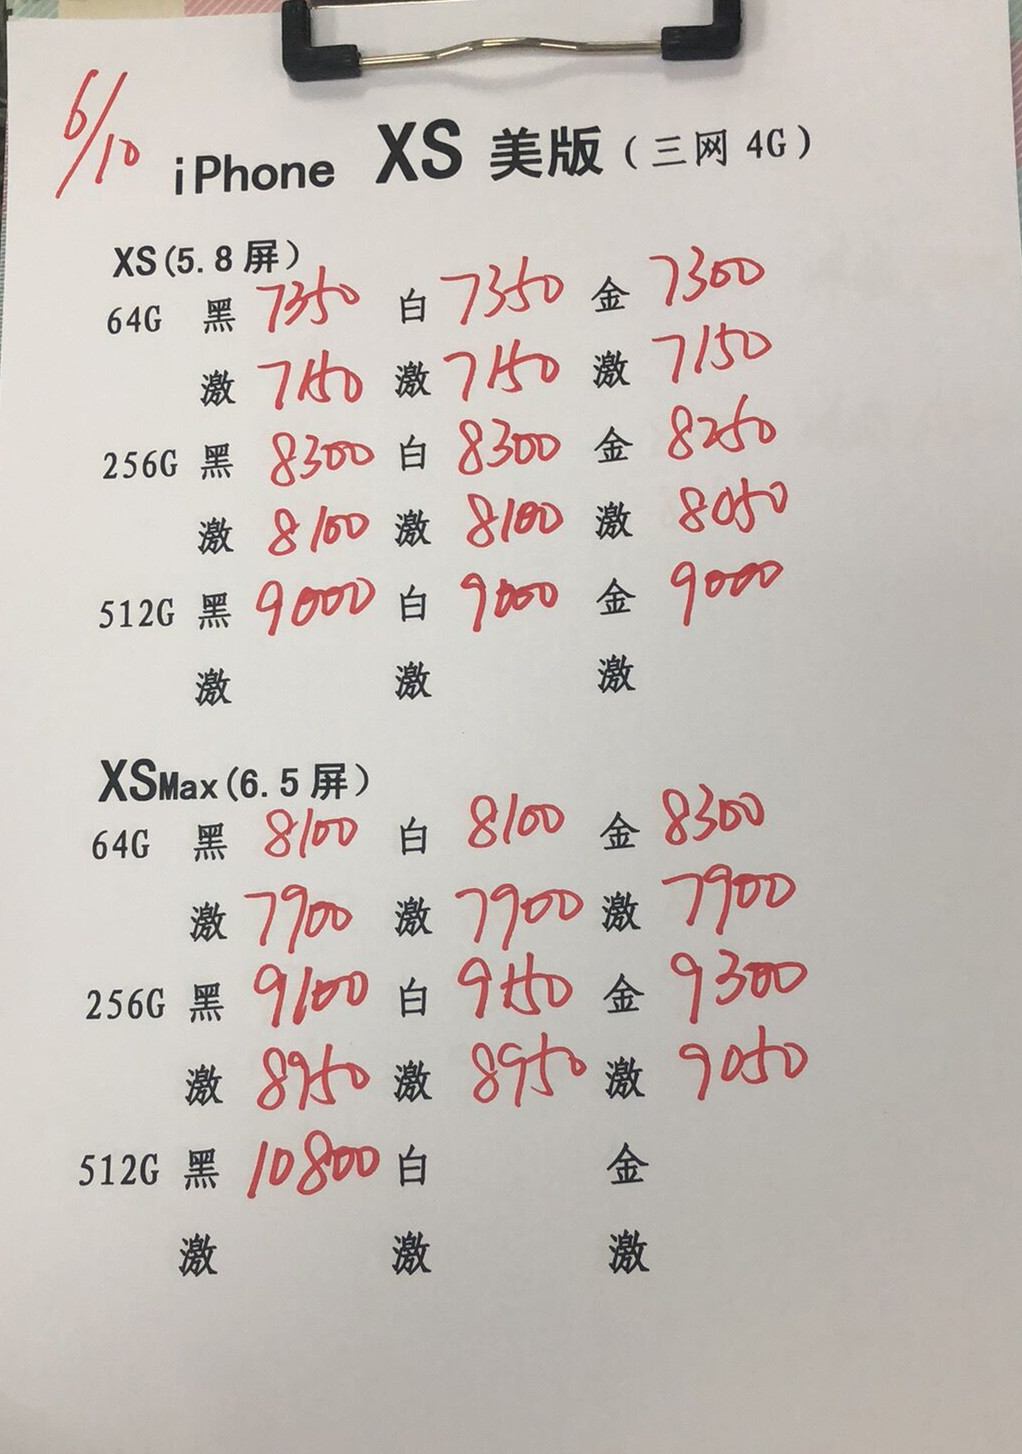 6/10
iPhone XS 美版（三网 4G）
XS(5.8屏）
64G 黑 7350 白 7350 金 7300
激 7150 激 7150 激 7150
256G 黑 8300 白 8300 金 8250
激 8100 激 8100 激 8050
512G 黑 9000 白 9000 金 9000
激 激 激
XSMax(6.5屏）
64G 黑 8100 白 8100 金 8300
激 7900 激 7900 激 7900
256G 黑 9100 白 9150 金 9300
激 8950 激 8950 激 9050
512G 黑 10800 白 金
激 激 激